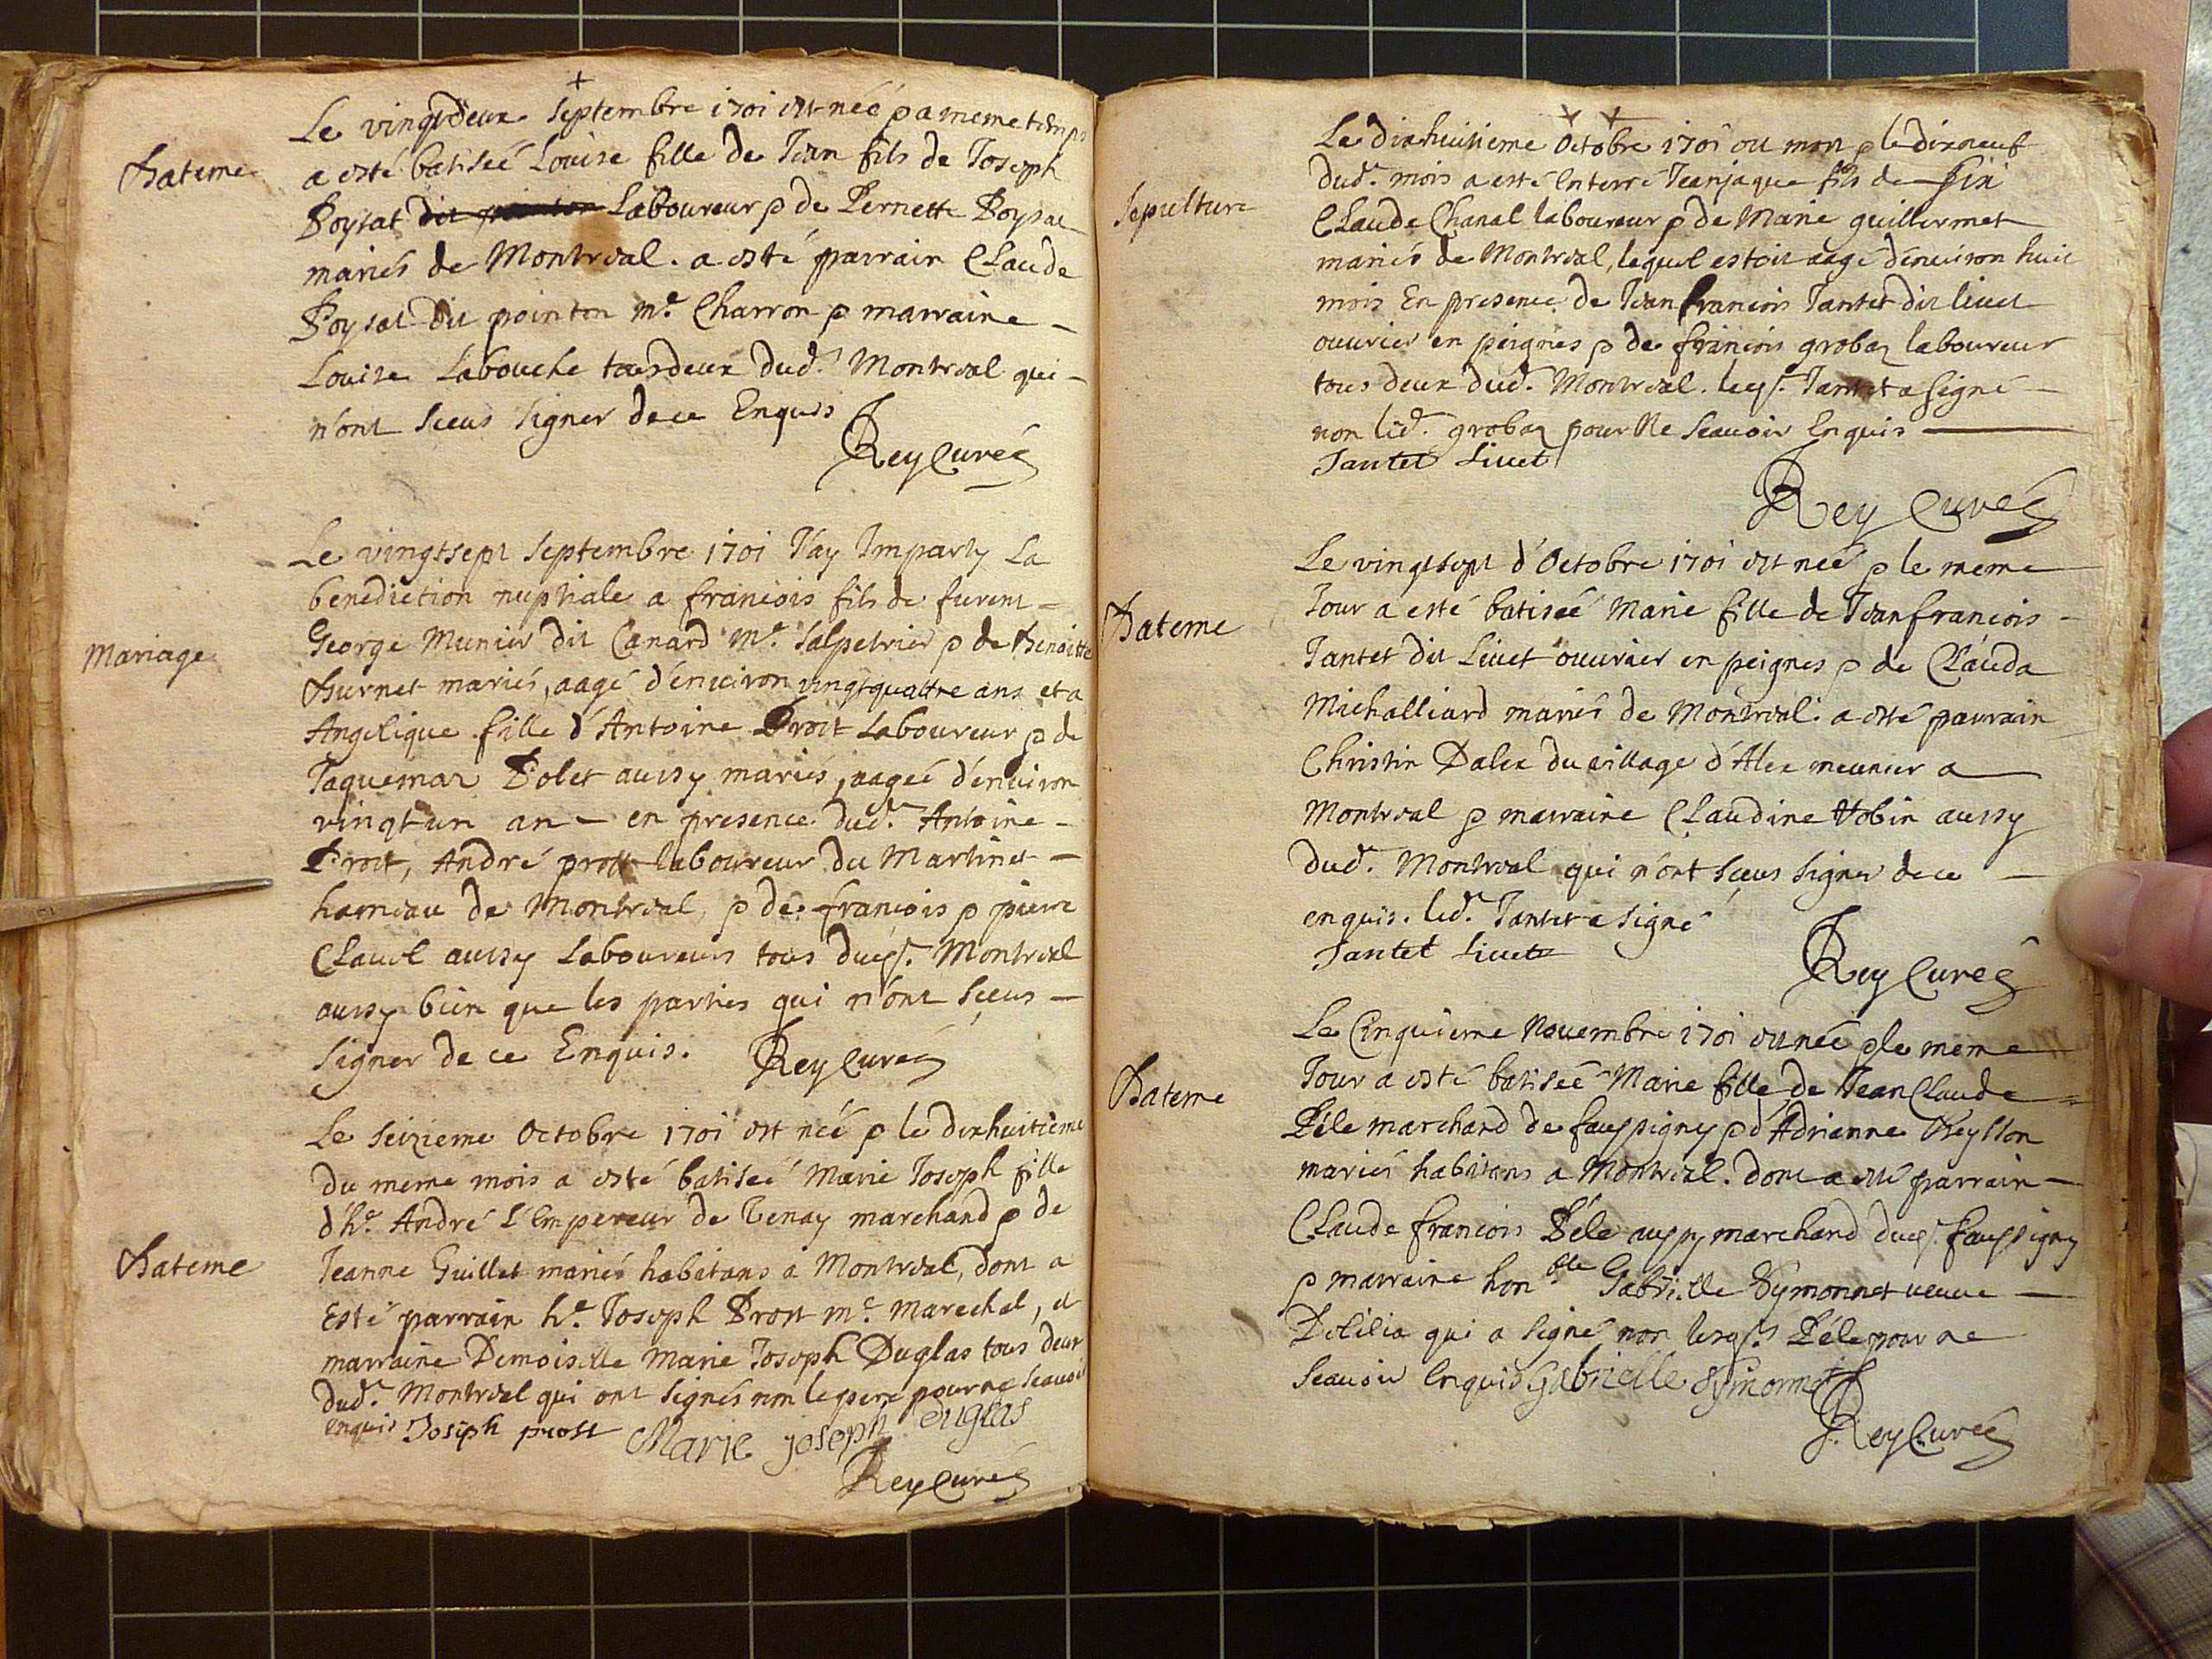 Le vingtdeux Septembre 1701 est née & a meme temps
Bateme
a esté batiseé Louise fille de Jean fils de Joseph
Poysat dit Laboureur & de Pernette Poysat
mariés de Montreal. a esté parrain Claude
Poysat dit pointon me. Charron & marraine
Louise Labouche tousdeux dud. Montreal qui
n'ont sceus signer de ce Enquis
Rey Curé
Le vingtsept Septembre 1701 J'ay Imparty La
benediction nuptiale a francois fils de furent
Mariage
George Munier dit Canard me. Salpetrier & de Benoitte
Burnet mariés, aagé d'enuiron vingtquattre ans et a
Angelique fille d'Antoine Prost Laboureur & de
Jaquemaz Polet aussy mariés, aageé d'enuiron
vingt un an en presence dud. Antoine
Prost, André prost laboureur du Martinet
hameau de Montreal, & de francois & pierre
Clauel aussy Laboureurs tous duqs. Montreal
aussy bien que les parties qui n'ont sceus
signer de ce Enquis. Rey Curé
Le seizieme Octobre 1701 est neé & le dixhuitieme
du meme mois a esté batiseé Marie Joseph fille
d'he. André L'Empereur de Tenay marchand & de
Bateme
Jeanne Guillet mariés habitans a Montreal, dont a
Esté parrain he. Joseph Prost me. marechal, et
marraine Demoiselle Marie Joseph Duglas tous deux
dud. Montreal qui ont signés non le pere pour ne scauoir
enquis Joseph prost Marie joseph duglas
Rey Curé
Le dixhuitieme Octobre 1701 est mort & le dixneuf
dud. mois a esté Enterré Jeanjaque fils de
Sepulture
Claude Chanal laboureur & de Marie guillermet
mariés de Montreal, lequel estoit aagé d'enuiron huit
mois En presence de Jean francois Jantet dit liuet
ouurier en peignes & de francois grobaz laboureur
tous deux dud. Montreal. leqs. Jantet a signé
non led. grobaz pour Ne Scauoir Enquis
Jantet Liuet
Rey Curé
Le vingtsept d'Octobre 1701 est neé & le meme
Bateme
Jour a esté batiseé Marie fille de Jeanfrancois
Jantet dit Liuet ouurier en peignes & de Clauda
Michalliard mariés de Montreal. a esté parrain
Christin Dalex du village d'Alex meunier a
Montreal & marraine Claudine Vobin aussy
dud. Montreal qui n'ont sceus signer de ce
enquis. led. Jantet a signé
Jantet Liuet
Rey Curé
Le Cinquieme Nouembre 1701 est neé & le meme
Bateme
Jour a esté batiseé Marie fille de Jean Claude
Péle marchand de faussigny & d'Adrianne Reysson
mariés habitans a Montreal. dont a esté parrain
Claude francois Péle aussy marchand duqs. faussigny
& marraine honble Gabrielle Symonnet veuue
Delilia qui a signé non lesqs. Péle pour ne
Scauoir Enquis Gabrielle Symonnet
Rey Curé